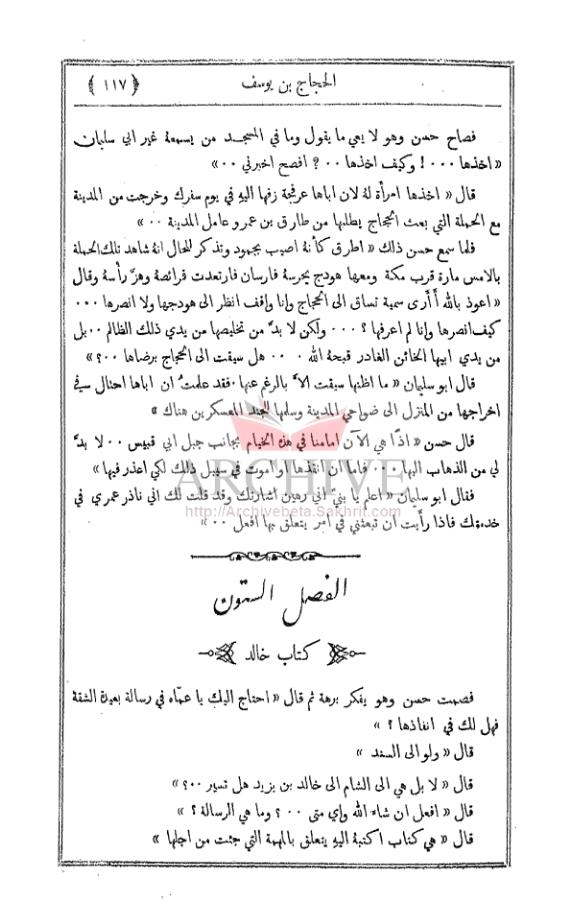 الحجاج بن يوسف ﴿ ١١٧ ﴾
فصاح حسن وهو لا يعي ما يقول وما في المسجد من يسمعهُ غير ابي سليمان
« اخذها ٠٠٠ ! وكيف اخذها ٠٠ ? افصح اخبرني ٠٠ »
قال « اخذها امرأة لهُ لان اباها عرفجة زفها اليهِ في يوم سفرك وخرجت من المدينة
مع الحملة التي بعث الحجاج يطلبها من طارق بن عمرو عامل المدينة ٠٠ »
فلما سمع حسن ذلك « اطرق كأنهُ اصيب بجمود وتذكر للحال انهُ شاهد تلك الحملة
بالامس مارة قرب مكة ومعها هودج يحرسهُ فارسان فارتعدت فرائصهُ وهزَّ رأسهُ وقال
« اعوذ بالله أَأرى سمية تساق الى الحجاج وانا واقف انظر الى هودجها ولا انصرها ٠٠٠
كيف انصرها وانا لم اعرفها ? ٠٠٠ ولكن لا بدَّ من تخليصها من يدي ذلك الظالم ٠٠ بل
من يدي ابيها الخائن الغادر قبحهُ الله ٠ ٠٠ هل سيقت الى الحجاج برضاها ٠٠ ?»
قال ابو سليمان « ما اظنها سيقت الاَّ بالرغم عنها ٠ فقد علمت ان اباها احتال في
اخراجها من المنزل الى ضواحي المدينة وسلمها للجند المعسكرين هناك »
قال حسن « اذًا هي الآن امامنا في هذه الخيام بجانب جبل ابي قبيس ٠٠ لا بدَّ
لي من الذهاب اليها ٠٠٠ فاما ان انقذها او اموت في سبيل ذلك لكي اعذر فيها »
فقال ابو سليمان « اعلم يا بني اني رهين اشارتك وقد قلت لك اني ناذر عمري في
خدمتك فاذا رأيت ان تبعثني في امر يتعلق بها افعل ٠٠ »
ARCHIVE
http://Archivebeta.Sakhrit.com
الفصل الستون
كتاب خالد
فصمت حسن وهو يفكر برهة ثم قال « احتاج اليك يا عماه في رسالة بعيدة الشقة
فهل لك في انفاذها ? »
قال « ولو الى السند »
قال « لا بل هي الى الشام الى خالد بن يزيد هل تسير ٠٠ ?»
قال « افعل ان شاء الله واي متى ٠٠ ? وما هي الرسالة ? »
قال « هي كتاب اكتبهُ اليهِ يتعلق بالمهمة التي جئت من اجلها »